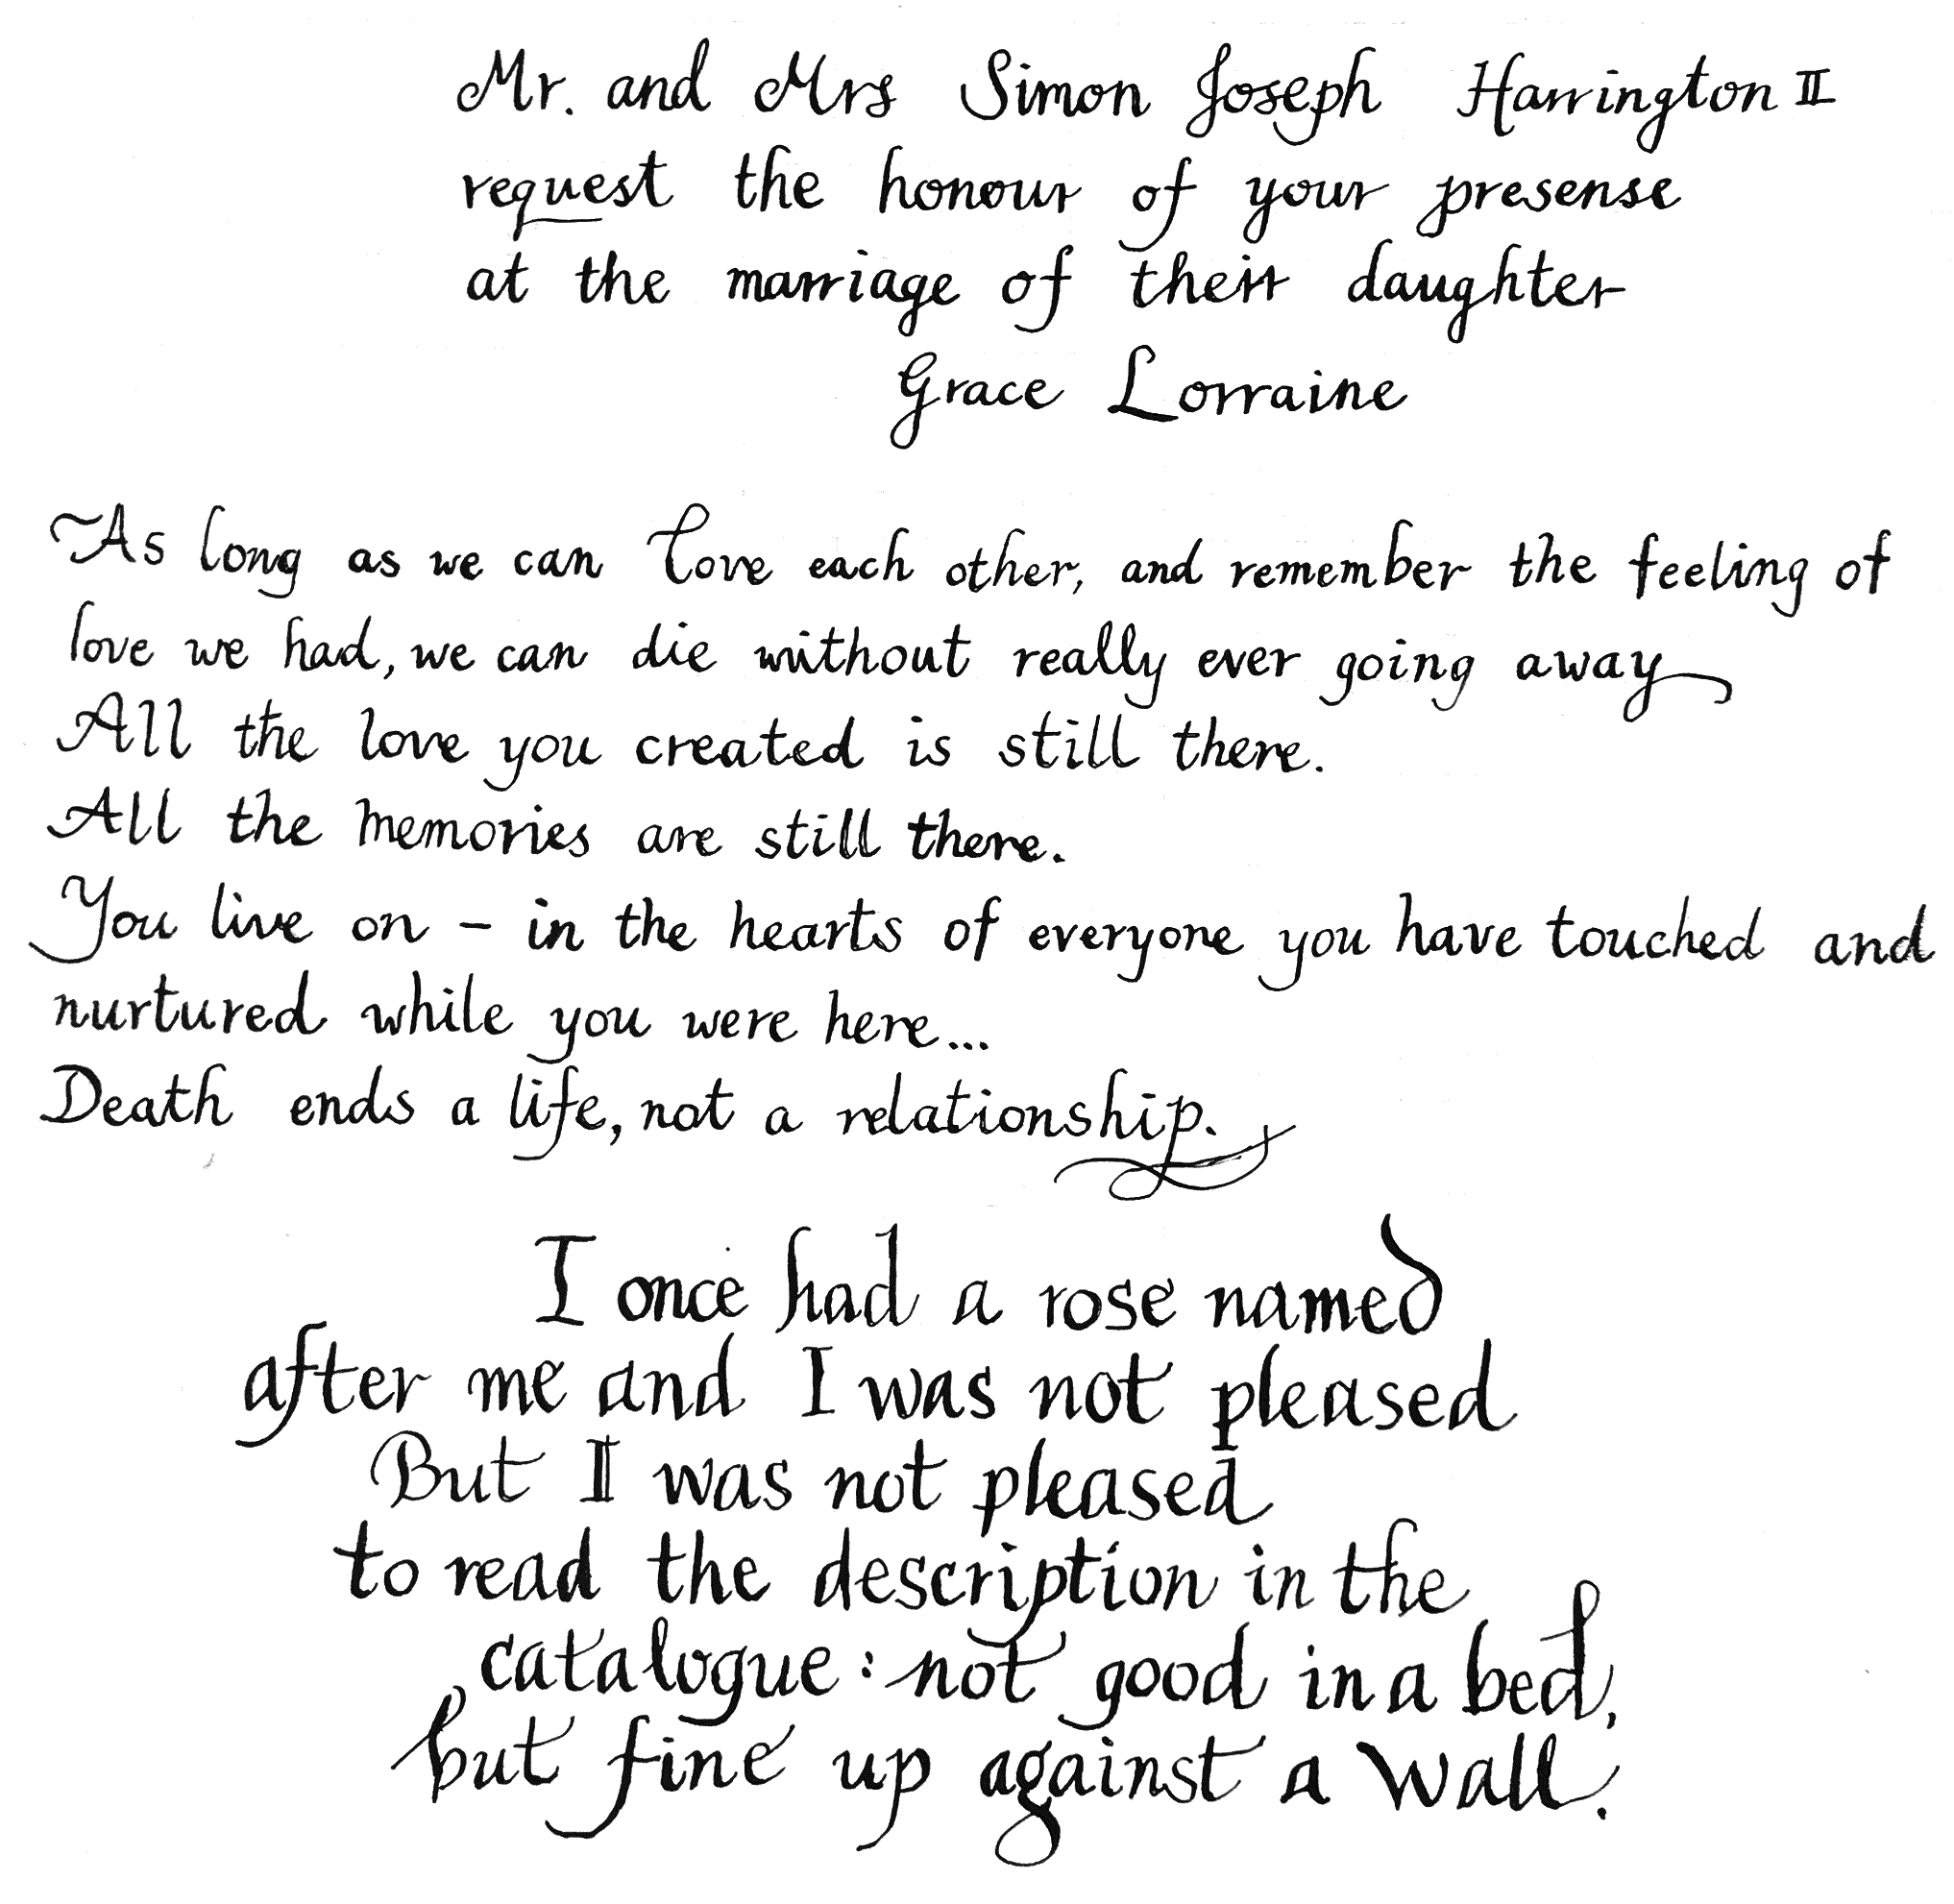 Mr. and Mrs Simon Joseph Harrington II
request the honour of your presense
at the marriage of their daughter
Grace Lorraine
As long as we can love each other, and remember the feeling of
love we had, we can die without really ever going away
All the love you created is still there.
All the memories are still there.
You live on – in the hearts of everyone you have touched and
nurtured while you were here...
Death ends a life, not a relationship.
I once had a rose named
after me and I was not pleased
But I was not pleased
to read the description in the
catalogue: not good in a bed,
but fine up against a wall.